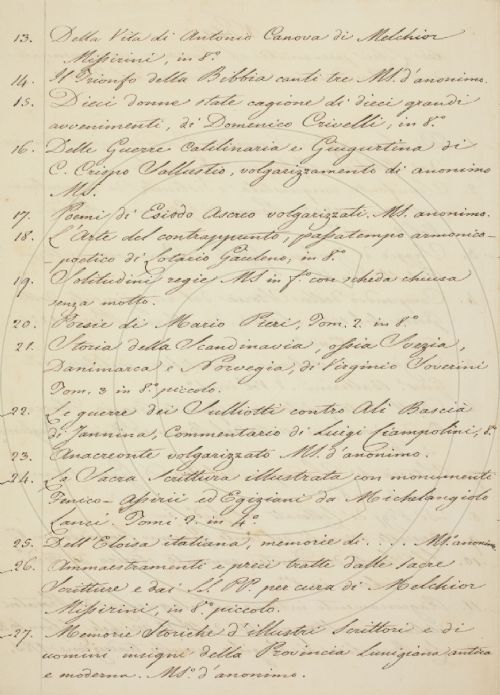 13. Della Vita di Antonio Canova di Melchior
Missirini, in 8.°
14. Il Trionfo della Bibbia canti tre MS. d'anonimo.
15. Dieci donne state cagione di dieci grandi
avvenimenti, di Domenico Crivelli, in 8.°
16. Delle Guerre Catilinaria e Giugurtina di
C. Crispo Sallustio, volgarizzamento di anonimo
MS.
17. Poemi di Esiodo Ascreo volgarizzati. MS. anonimo.
18. L'Arte del contrappunto, passatempo armonico-
-poetico di Lotario Gaeleno; in 8.°
19. Solitudini regie MS in f.° con scheda chiusa
senza motto.
20. Poesie di Mario Pieri, Tom. 2. in 8.°
21. Storia della Scandinavia, ossia Svezia,
Danimarca e Norvegia, di Virginio Soverini
Tom. 3 in 8.° piccolo.
22. Le guerre dei Sulliotti contro Ali Bascià
di Jannina, Commentario di Luigi Ciampolini, 8.°
23. Anacreonte volgarizzato MS. d'anonimo.
24. La Sacra Scrittura illustrata con monumenti
Fenico-Assirii ed Egiziani da Michelangiolo
Lanci. Tomi 2. in 4.°
25. Dell'Eloisa italiana, memorie di . . . . MS.° anonimo
26. Ammaestramenti e preci tratte dalle sacre
Scritture e dai SS. PP. per cura di Melchior
Missirini, in 8.° piccolo.
27. Memorie Storiche d'illustri Scrittori e di
uomini insigni della Provincia Lunigiana antica
e moderna. MS.° d'anonimo.